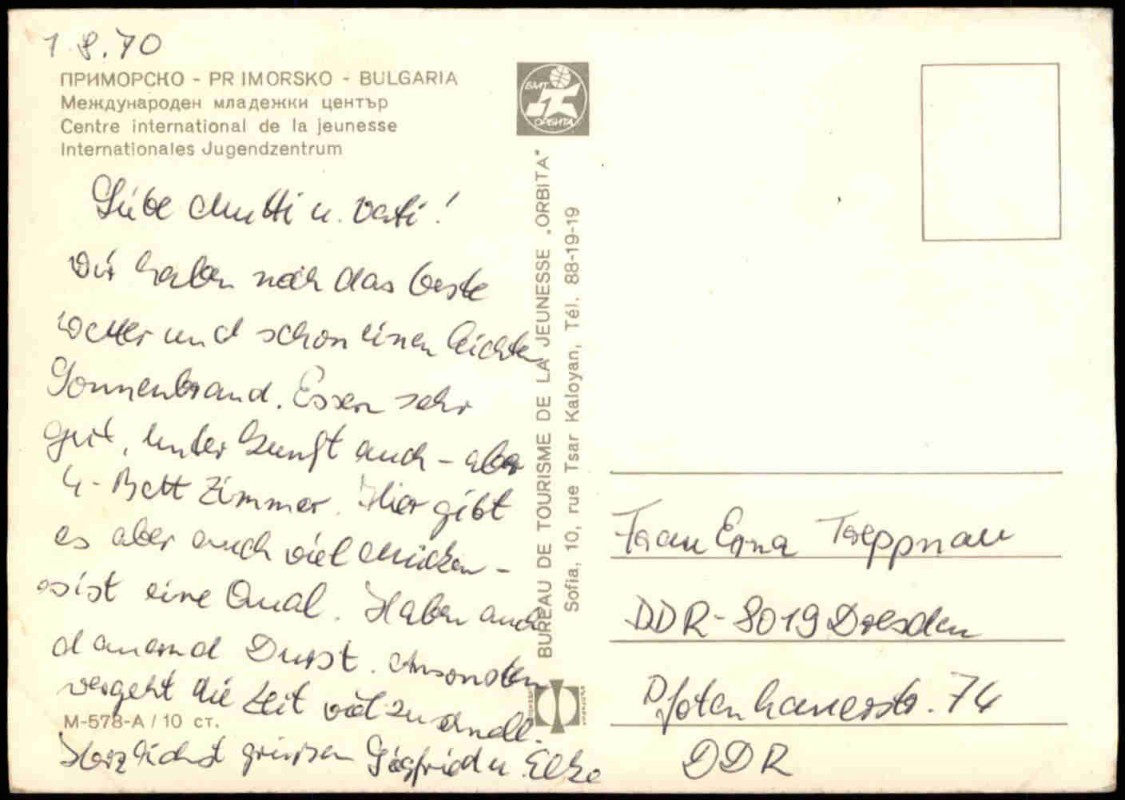 1.8.70
ПРИМОРСКО - PRIMORSKO - BULGARIA
Международен младежки център
Centre international de la jeunesse
Internationales Jugendzentrum
Liebe Mutti u. Vati!
Wir haben noch das beste
Wetter und schon einen leichten
Sonnenbrand. Essen sehr
gut, Unterkunft auch - aber
4-Bett Zimmer. Hier gibt
es aber auch viel Mücken -
es ist eine Qual. Haben auch
dauernd Durst. Ansonsten
vergeht die Zeit viel zu schnell.
M-578-A / 10 ст.
Herzlichst grüssen Siegfried u. Elke
БМТ
ОРБИТА
BUREAU DE TOURISME DE LA JEUNESSE „ORBITA"
Sofia, 10, rue Tsar Kaloyan, Tél. 88-19-19
Frau Erna Treppnau
DDR-8019 Dresden
Pfotenhauerstr. 74
DDR